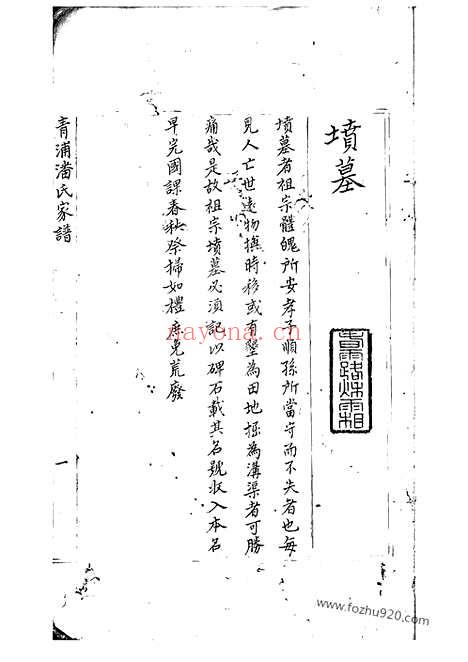 墳墓
春露秋霜
墳墓者祖宗體魄所安孝子順孫所當守而不失者也每
見人亡世遠物換時移或有墾為田地掘為溝渠者可勝
痛哉是故祖宗墳墓必須記以碑石載其名號收入本名
早完國課春秋祭掃如禮庶免荒廢
青浦潘氏家譜
一
nayona.cn
www.fozhu920.com